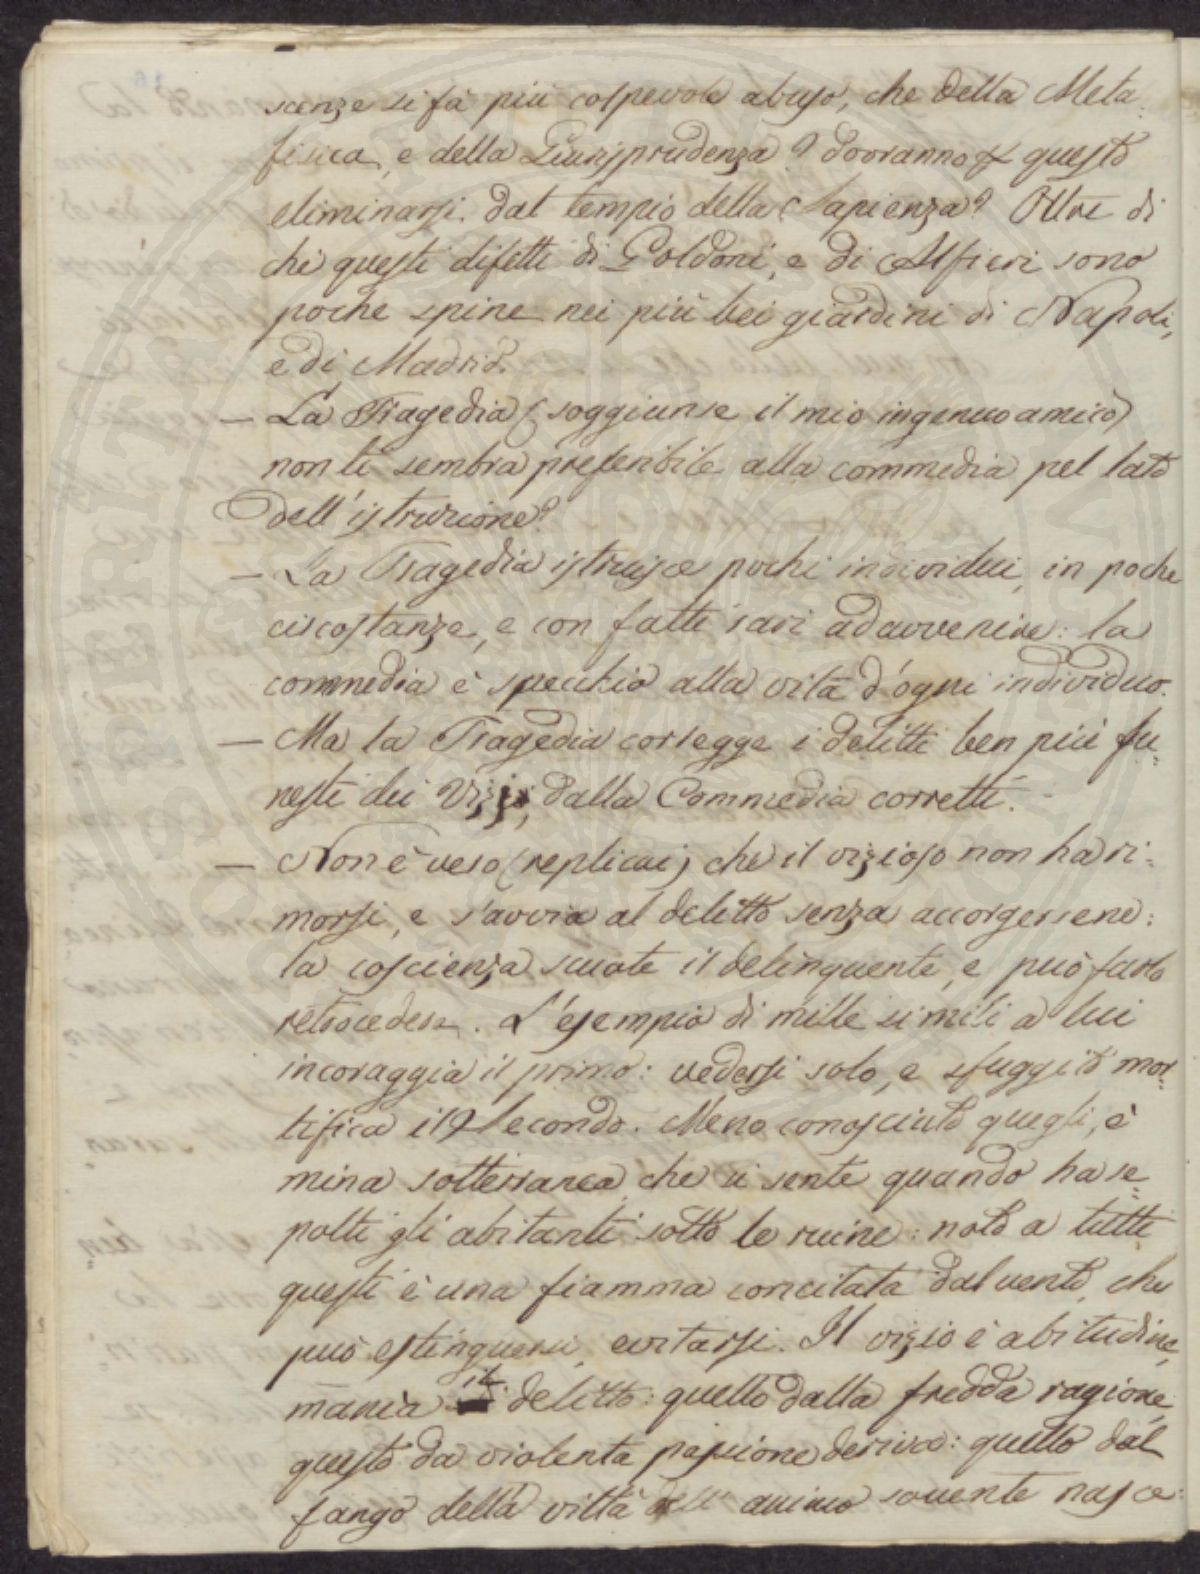 scenze si fà più colpevole abuso, che della Meta-
fisica, e della Giurisprudenza? dovranno questo
eliminarsi dal tempio della Sapienza? Oltre di
chè questi difetti di Goldoni, e di Alfieri sono
poche spine nei più bei giardini di Napoli,
e di Madrid.
— La Tragedia (soggiunse il mio ingenuo amico)
non ti sembra preferibile alla commedia pel lato
dell'istruzione?
— La Tragedia istruisce pochi individui, in poche
circostanze, e con fatti rari ad avvenire: la
commedia è specchio alla vita d'ogni individuo.
— Ma la Tragedia corregge i delitti ben più fu=
nesti dei vizj, dalla Commedia corretti.
— Non è vero (replicai) che il vizioso non ha ri=
morsi, e s'avvia al delitto senza accorgersene:
la coscienza scuote il delinquente, e può farlo
retrocedere. L'esempio di mille simili a lui
incoraggia il primo: vedersi solo, e sfuggito mor=
tifica il Secondo. Meno conosciuto quegli, è
mina sotterranea che si sente quando ha se=
polti gli abitanti sotto le ruine: noto a tutti
questi è una fiamma concitata dal vento, che
può estinguersi, evitarsi. Il vizio è abitudine,
mania il delitto: quello dalla fredda ragione,
questo da violenta passione deriva: quello dal
fango della viltà dell'animo sovente nasce: